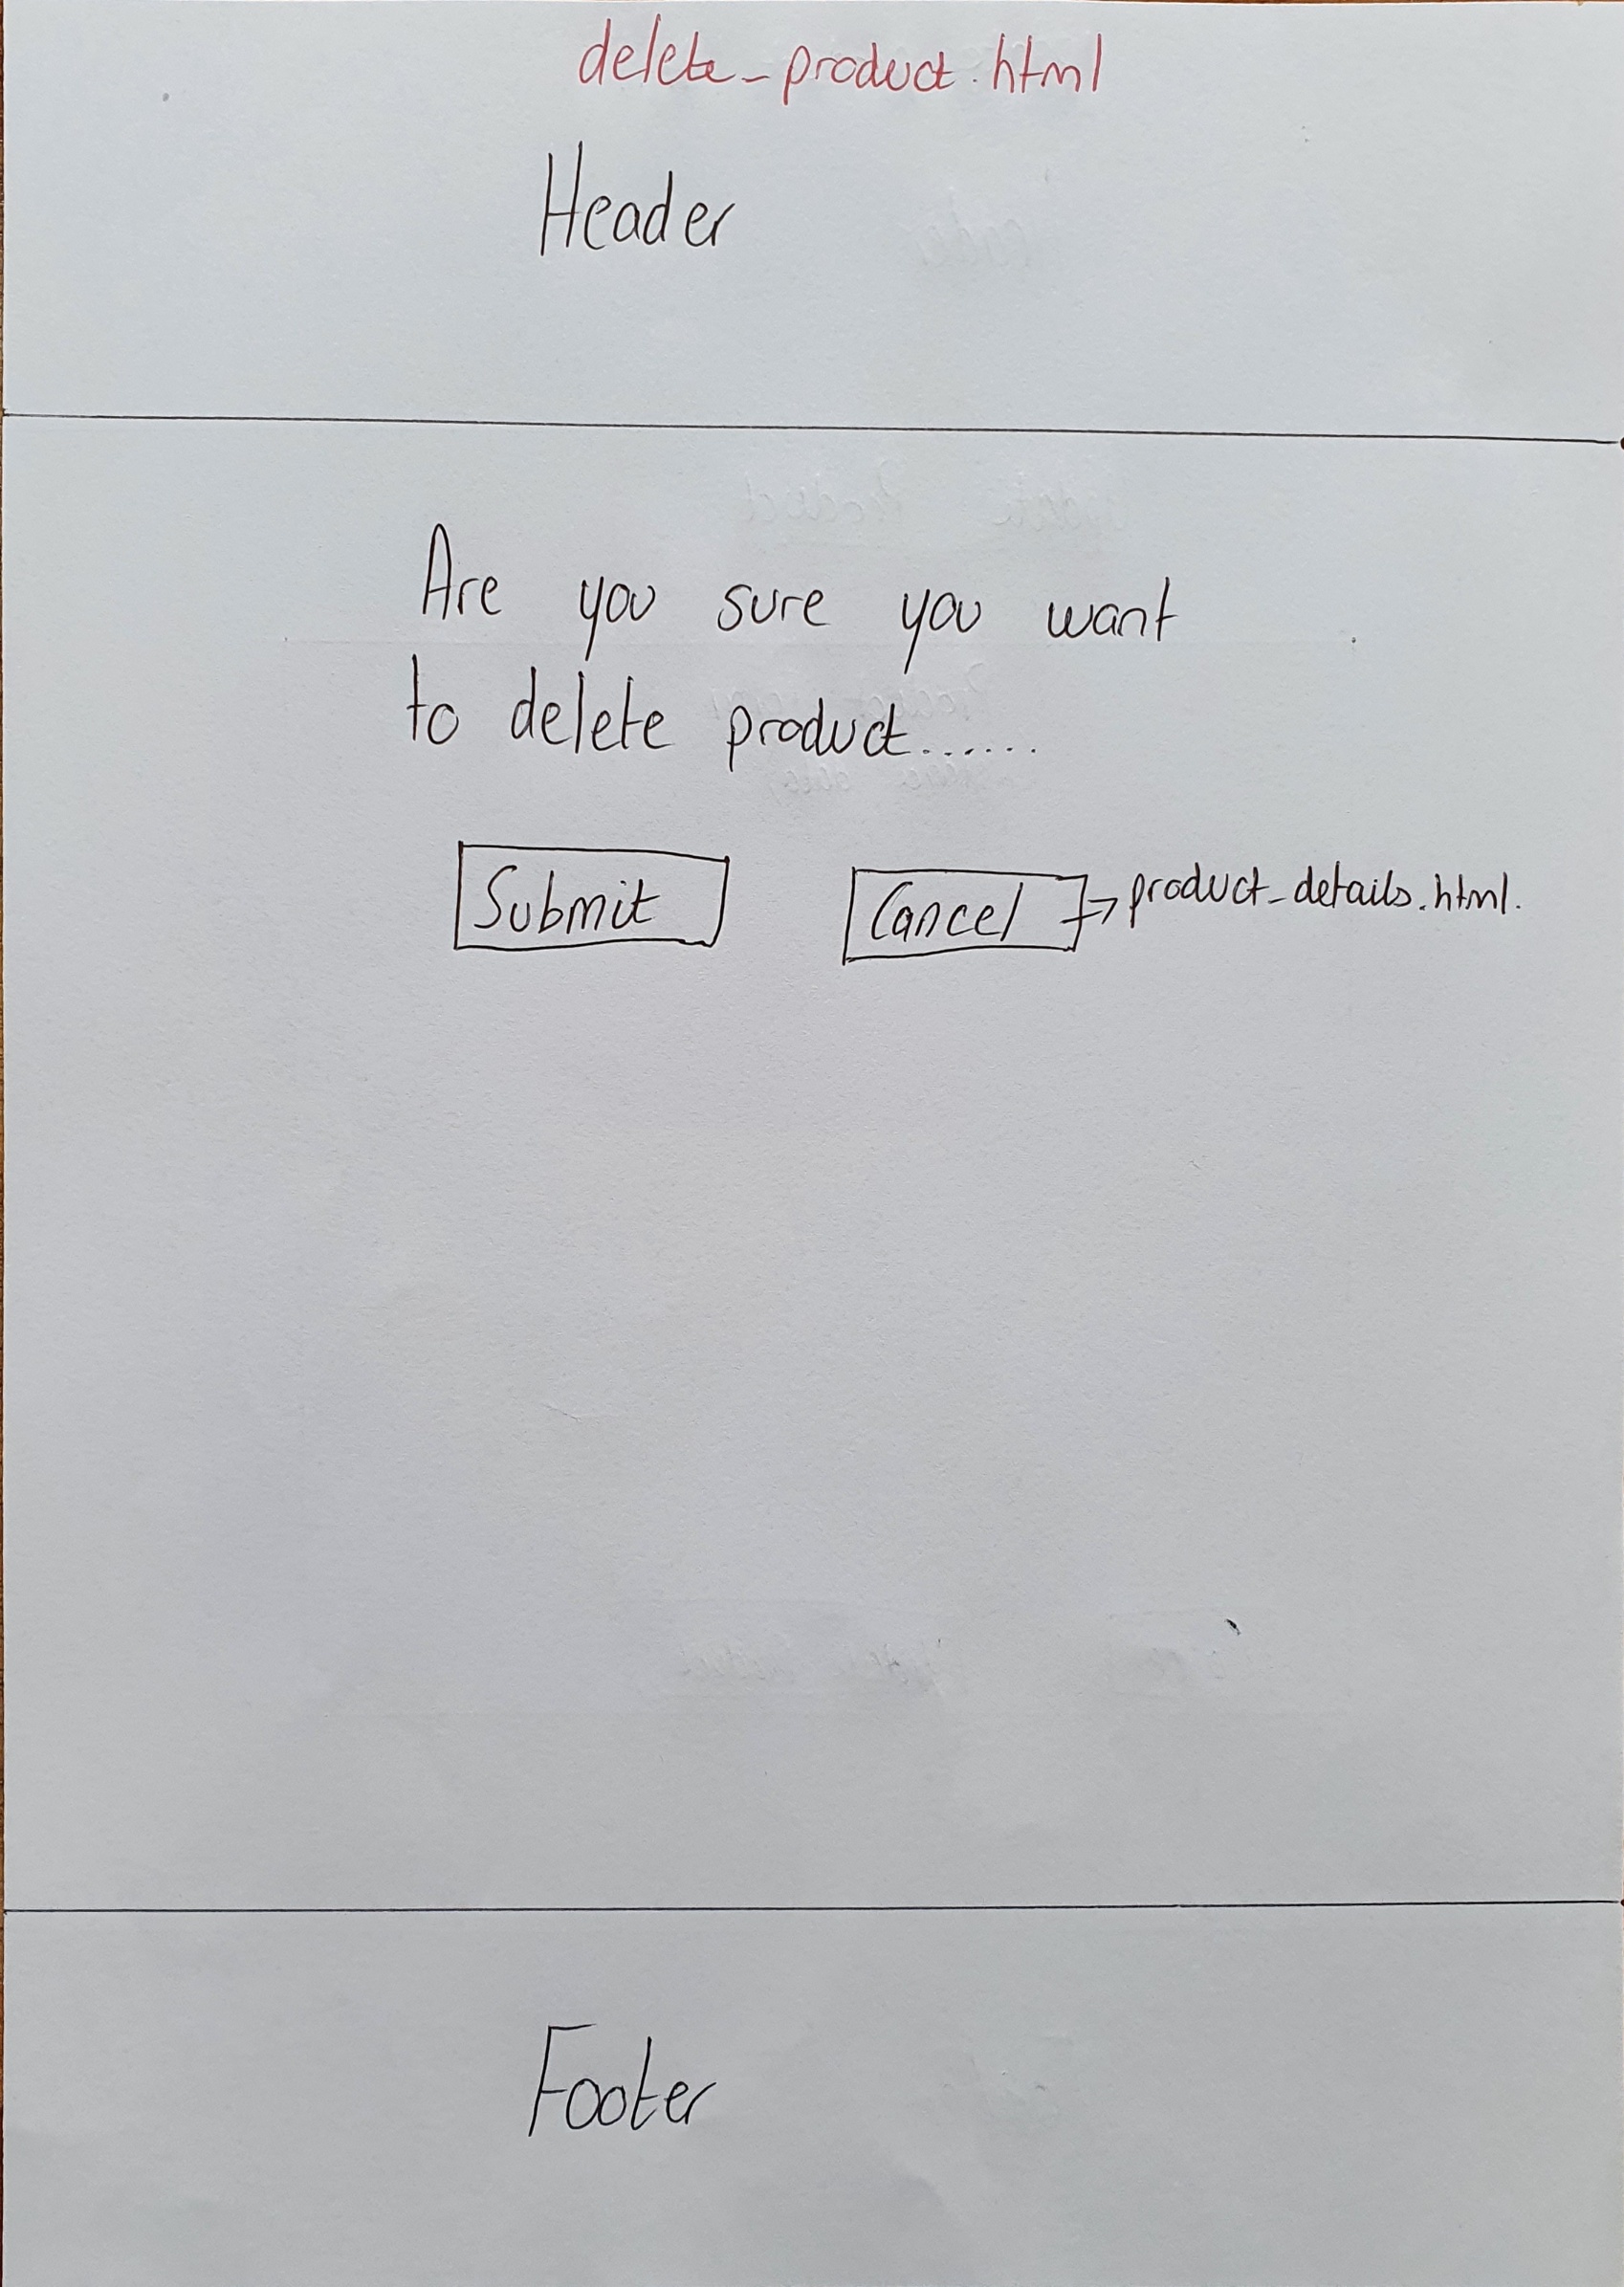 delete_product.html
Header
Are you sure you want
to delete product......
Submit Cancel → product_details.html.
Footer